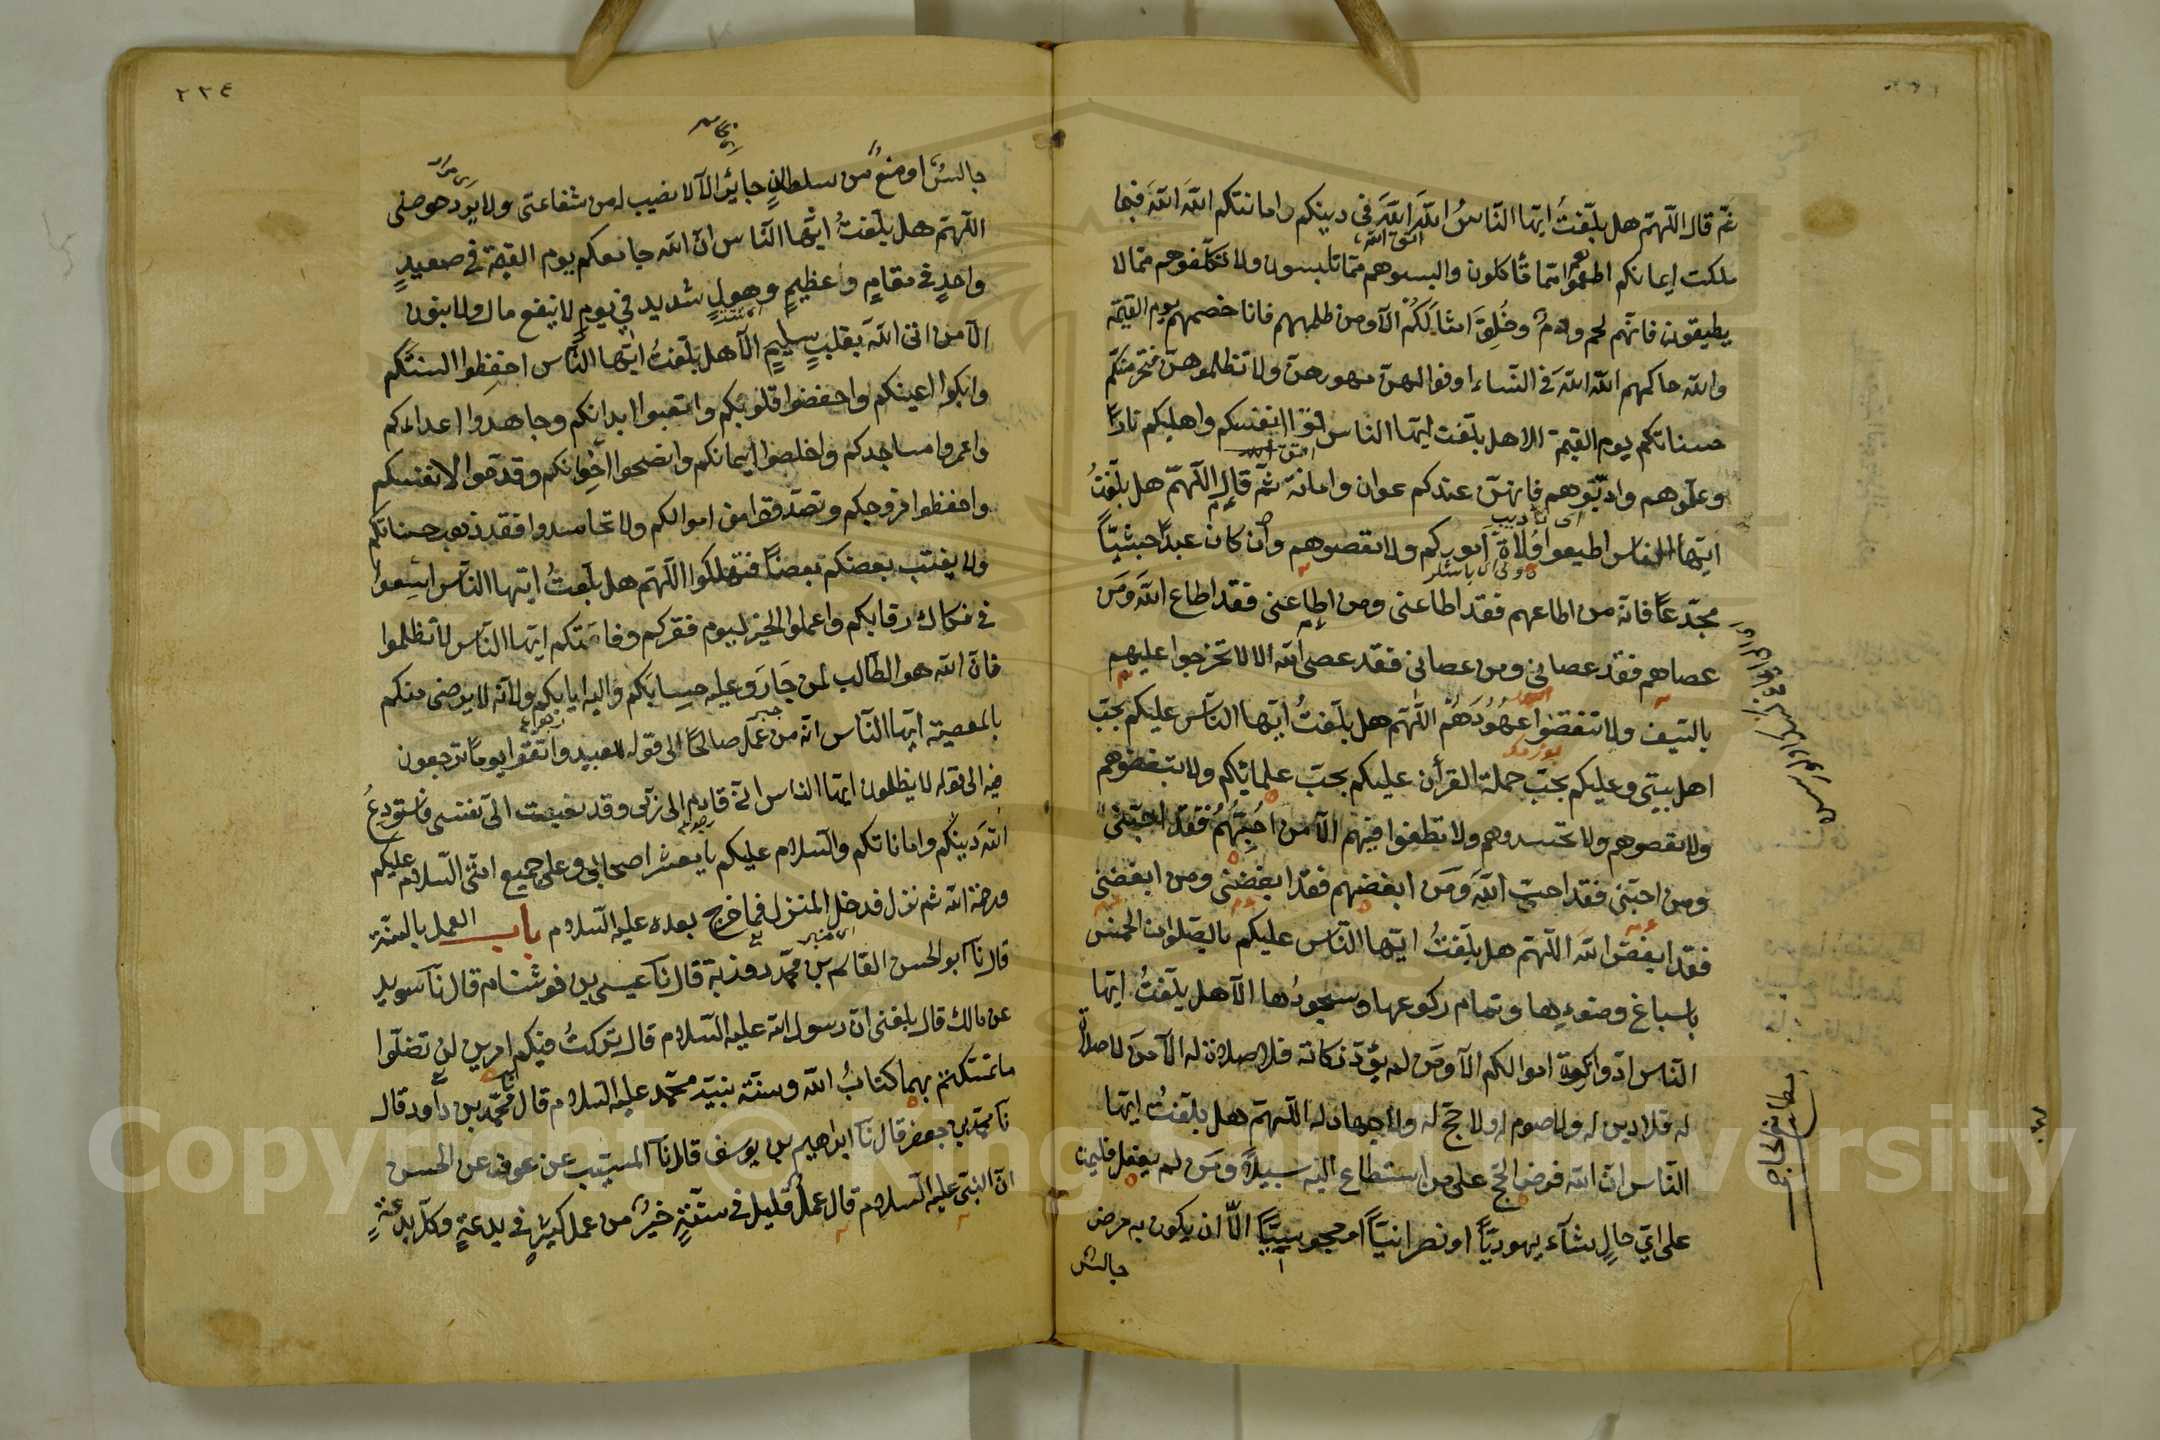 ثمّ قال اللّهمّ هل بلّغتُ ايّها النّاسُ اللّهَ اللّهَ فى دينكم وامانتكم اللّهَ اللّهَ فيما
ملكت ايمانكم اطعموا ممّا تأكلون والبسوهم ممّا تلبسون ولا تكلّفوهم ممّا لا
يطيقون فانّهم لحم ودمٌ وخُلِقَ امثالكم الا ومن ظلمهم فانا خصمهم يوم القيمة
واللّه حاكمهم اللّهَ اللّهَ فى النّساء اوفوا لهنّ مهورهنّ ولا تظلموهنّ فتحرمكم
حسناتكم يوم القيمة الا هل بلّغت ايّها الناس قوا انفسكم واهليكم نارًا
وعلّموهم وادّبوهم فانهنّ عندكم عوان وامانة ثمّ قال اللّهمّ هل بلّغتُ
ايّها الناس اطيعوا وُلاةَ اموركم ولا تعصوهم وان كان عبدًا حبشيّاً
مجدّعًا فانّه من اطاعهم فقد اطاعنى ومن اطاعنى فقد اطاع اللّهَ ومَن
عصاهم فقد عصانى ومن عصانى فقد عصى اللّه الا لا تخرجوا عليهم
بالسّيف ولا تنقضوا عهُودَهُم اللّهمّ هل بلّغتُ ايّها النّاس عليكم بحبّ
اهل بيتى وعليكم بحبّ حملة القرأن عليكم بحبّ علمائكم ولا تبغضوهم
ولا تعصوهم ولا تحسدوهم ولا تطعنوا فيهم الا من احبّهُم فقد احبّنى
ومن احبّنى فقد احبّ اللّهَ ومَن ابغضهم فقد ابغضنى ومن ابغضنى
فقد ابغض اللّهَ اللّهمّ هل بلّغتُ ايّها النّاس عليكم بالصّلوات الخمس
باسباغ وضوءِها وتمام ركوعها وسجودُها الا هل بلّغتُ ايّها
النّاس ادّوا زكوة اموالكم الا ومَن لم يؤدّ زكاته فلا صلاة له الا مَن لا صلاة
له فلا دين له ولا صوم له ولا حجّ له ولا جهاد له اللّهمّ هل بلّغتُ ايّها
النّاس انّ اللّه فرض الحجّ على من استطاع اليه سبيلًا ومَن لم يفعل فليمت
على اىّ حالٍ شآء يهوديّاً او نصرانيّاً او مجوسيّاً الّا ان يكون به مرض
حابس
٢٢٤
حابس او منعٌ من سلطانٍ جايرٍ الا لا نصيب له من شفاعتى ولا يَرِد حوضى
اللّهمّ هل بلّغتُ ايّها النّاس انّ اللّه جامعكم يوم القيمة فى صعيدٍ
واحدٍ فى مقامٍ عظيمٍ وهولٍ شديد فى يومٍ لا ينفع مال ولا بنون
الا من اتى اللّه بقلبٍ سليمٍ الا هل بلّغتُ ايّها النّاس احفظوا السنتكم
وابكوا اعينكم واخضعوا قلوبكم واتعبوا ابدانكم وجاهدوا اعداءكم
واعمروا مساجدكم واخلصوا ايمانكم وانصحوا اخوانكم وقدّموا لانفسكم
واحفظوا فروجكم وتصدّقوا من اموالكم ولا تحاسدوا فتذهب حسناتكم
ولا يغتب بعضكم بعضًا فتهلكوا اللّهمّ هل بلّغتُ ايّها النّاس اسعوا
فى فكاك رقابكم واعملوا الخير ليوم فقركم وفاقتكم ايّها النّاس لا تظلموا
فانّ اللّه هو الطّالب لمن جَارَ وعليه حسابكم واليه ايابكم ولانّه لا يرضى منكم
بالمعصية ايّها النّاس انّه من عمل صالحًا الى قوله للعبيد واتّقوا يومًا ترجعون
فيه الى قوله لا يظلمون ايّها الناس انّى قادم الى ربّى وقد نعيت الىّ نفسى فاستودِعُ
اللّهَ دينكم واماناتكم والسّلام عليكم يا معشر اصحابى وعلى جميع امّتى السّلام عليكم
ورحمة اللّه ثم نزل فدخل المنزل فما خرج بعده عليه السّلام باب العمل بالسّنّة
قال نا ابو الحسن القاسم بن محمّد روزبة قال نا عيسى بن خوشنام قال نا سويد
عن مالك قال بلغنى انّ رسول اللّه عليه السّلام قال تركتُ فيكم امرين لن تضلّوا
ما تمسّكتم بهما كتابُ اللّه وسنّة نبيّه محمّد عليه السّلام قال نا محمّد بن داود قال
نا محمّد بن جعفر قال نا ابراهيم بن يوسف قال نا المسيّب عن عوف عن الحسن
انّ النبىّ عليه السّلام قال عملٌ قليل فى سنّةٍ خيرٌ من عمل كثيرٍ فى بدعةٍ وكلّ بدعةٍ
Copyright © King Saud University